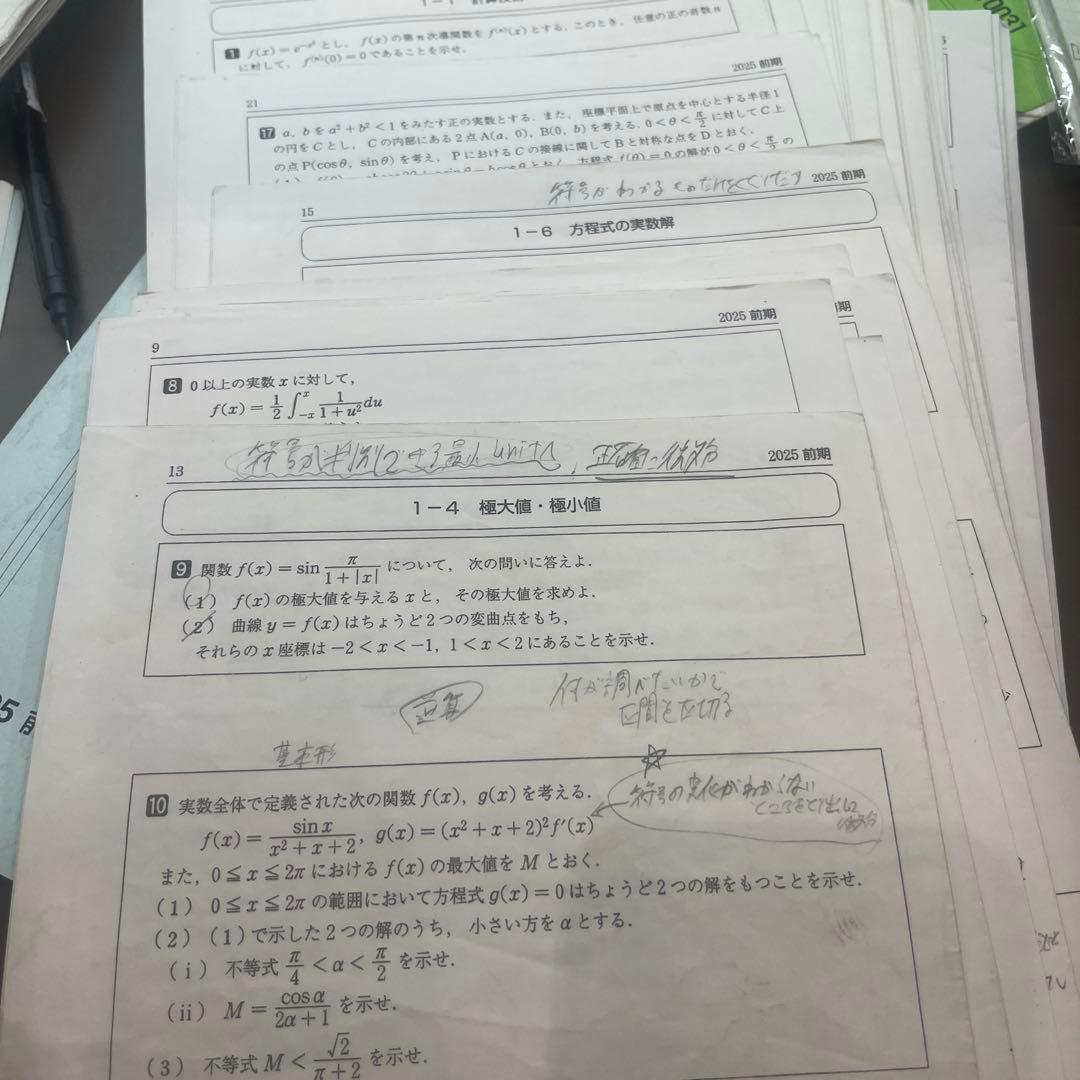 1 f(x)=e^{-x²}とし, f(x)の第n次導関数をf^{(n)}(x)とする. このとき, 任意の正の奇数n
に対して, f^{(n)}(0)=0であることを示せ.
2025 前期
21
17 a, bをa²+b²<1をみたす正の実数とする. また, 座標平面上で原点を中心とする半径1
の円をCとし, Cの内部にある2点A(a, 0), B(0, b)を考える. 0<θ<π/2に対してC上
の点P(cosθ, sinθ)を考え, PにおけるCの接線に関してBと対称な点をDとおく.
符号がわかるものだけ
2025 前期
15
1-6 方程式の実数解
2025 前期
9
8 0以上の実数xに対して,
f(x)=1/2∫_{-x}^{x} 1/(1+u²) du
符号が判別できる最小unitへ,
2025 前期
13
1-4 極大値・極小値
9 関数f(x)=sin π/(1+|x|)について, 次の問いに答えよ.
(1) f(x)の極大値を与えるxと, その極大値を求めよ.
(2) 曲線y=f(x)はちょうど2つの変曲点をもち,
それらのx座標は-2<x<-1, 1<x<2にあることを示せ.
逆算
何が調べたいかで
区間を区切る
基本形
☆
10 実数全体で定義された次の関数f(x), g(x)を考える.
符号の変化がわからない
ところをとり出して
f(x)=sin x/(x²+x+2), g(x)=(x²+x+2)²f′(x)
また, 0≦x≦2πにおけるf(x)の最大値をMとおく.
(1) 0≦x≦2πの範囲において方程式g(x)=0はちょうど2つの解をもつことを示せ.
(2) (1)で示した2つの解のうち, 小さい方をαとする.
(i) 不等式 π/4<α<π/2 を示せ.
(ii) M=cosα/(2α+1) を示せ.
(3) 不等式M<√2/(π+2) を示せ.